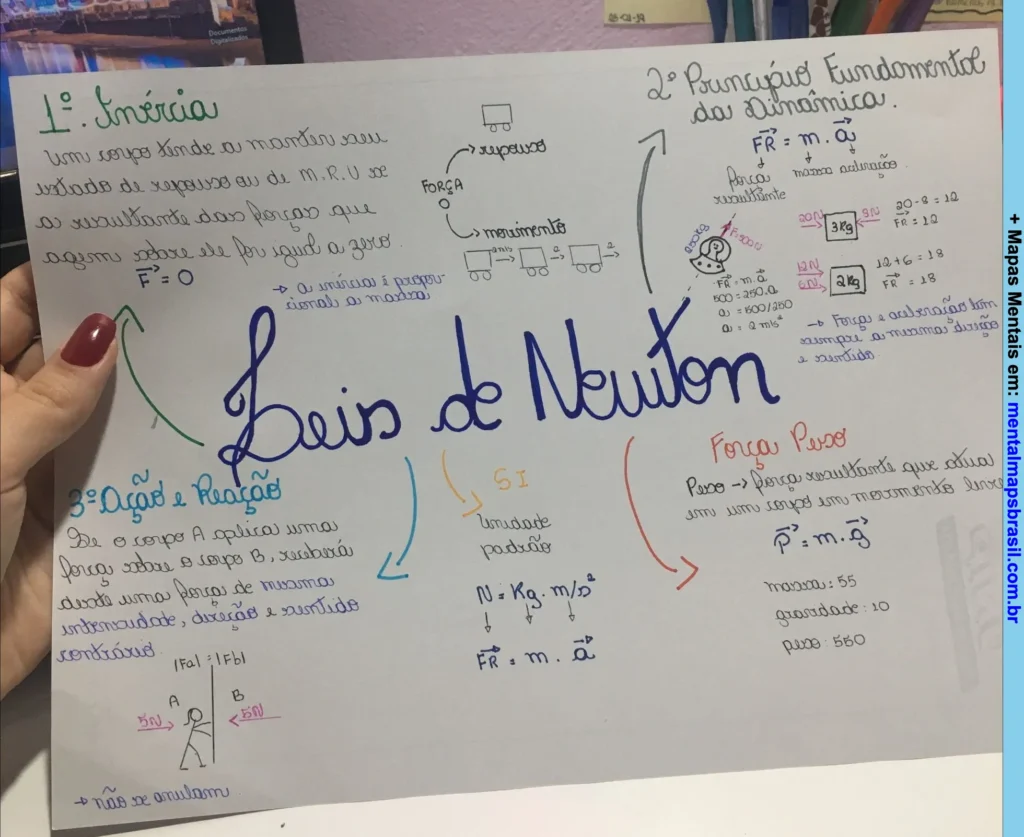 Documentos
Digitalizados
05-02-19
1º. Inércia
Um corpo tende a manter seu
estado de repouso ou de M.R.U se
a resultante das forças que
agem sobre ele for igual a zero.
F = 0
→ a inércia é propor
cional a massa
FORÇA
0
→ repouso
→ movimento
2m/s
a
a
2º Princípio Fundamental
da Dinâmica.
FR = m. a
força
resultante
massa
aceleração.
250Kg
F:500N
?
FR = m. a
500 = 250.a
a = 500/250
a = 2 m/s²
20N
3Kg
8N
20-8 = 12
FR = 12
12N
6N
2Kg
12+6 = 18
FR = 18
→ Força e aceleração tem
sempre a mesma direção
e sentido.
Leis de Newton
3º Ação e Reação
Se o corpo A aplica uma
força sobre o corpo B, receberá
deste uma força de mesma
intensidade, direção e sentido
contrário.
|Fa| = |Fb|
A
B
5N
5N
→ não se anulam
SI
Unidade
padrão
N = Kg. m/s²
FR = m. a
Força Peso
Peso → força resultante que atua
em um corpo em movimento livre
P = m. g
massa: 55
gravidade: 10
peso: 550
+ Mapas Mentais em: mentalmapsbrasil.com.br